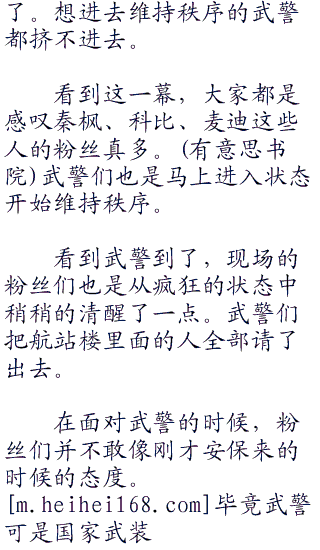 了。想进去维持秩序的武警
都挤不进去。
看到这一幕，大家都是
感叹秦枫、科比、麦迪这些
人的粉丝真多。(有意思书
院)武警们也是马上进入状态
开始维持秩序。
看到武警到了，现场的
粉丝们也是从疯狂的状态中
稍稍的清醒了一点。武警们
把航站楼里面的人全部请了
出去。
在面对武警的时候，粉
丝们并不敢像刚才安保来的
时候的态度。
[m.heihei168.com]毕竟武警
可是国家武装